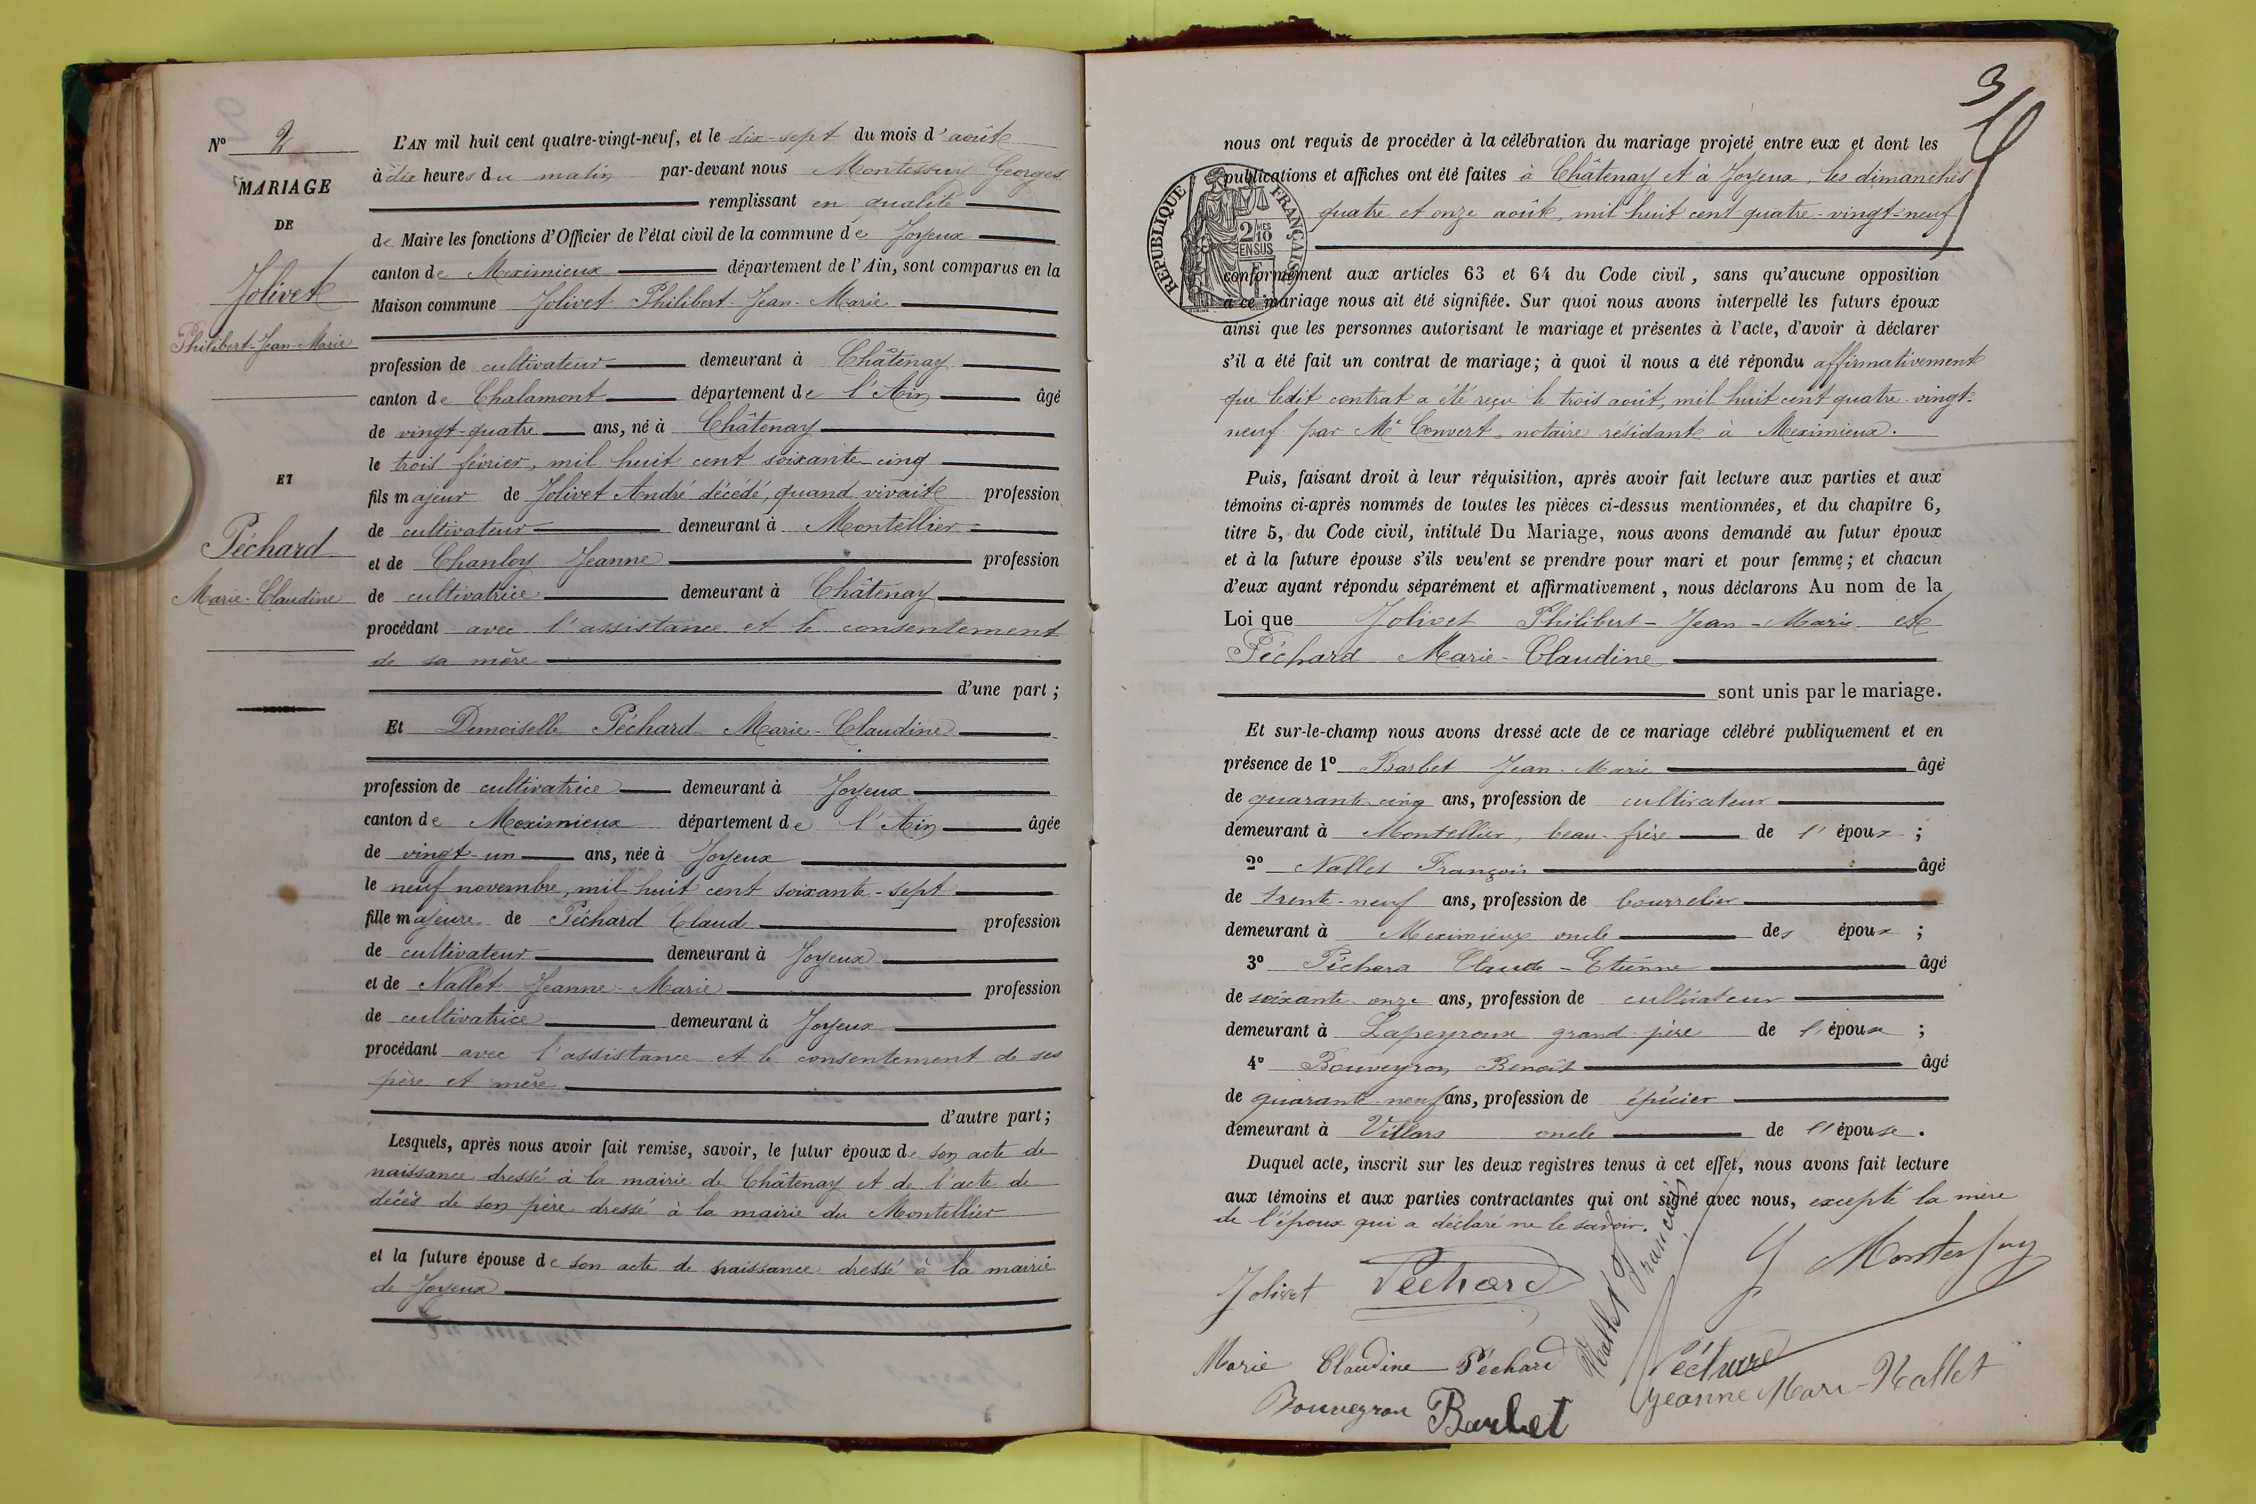 N° 2
MARIAGE
DE
Jolivet
Philibert-Jean-Marie
ET
Péchard
Marie-Claudine
L'AN mil huit cent quatre-vingt-neuf, et le dix-sept du mois d'août
à dix heures du matin par-devant nous Montessuy Georges
remplissant en qualité
de Maire les fonctions d'Officier de l'état civil de la commune de Joyeux
canton de Meximieux département de l'Ain, sont comparus en la
Maison commune Jolivet Philibert-Jean-Marie
profession de cultivateur demeurant à Châtenay
canton de Chalamont département de l'Ain âgé
de vingt-quatre ans, né à Châtenay
le trois février, mil huit cent soixante-cinq
fils majeur de Jolivet André décédé, quand vivait profession
de cultivateur demeurant à Montellier
et de Chanloy Jeanne profession
de cultivatrice demeurant à Châtenay
procédant avec l'assistance et le consentement
de sa mère
d'une part ;
Et Demoiselle Péchard Marie-Claudine
profession de cultivatrice demeurant à Joyeux
canton de Meximieux département de l'Ain âgée
de vingt-un ans, née à Joyeux
le neuf novembre, mil huit cent soixante-sept
fille majeure de Péchard Claud profession
de cultivateur demeurant à Joyeux
et de Nallet Jeanne-Marie profession
de cultivatrice demeurant à Joyeux
procédant avec l'assistance et le consentement de ses
père et mère
d'autre part ;
Lesquels, après nous avoir fait remise, savoir, le futur époux de son acte de
naissance dressé à la mairie de Châtenay et de l'acte de
décès de son père dressé à la mairie du Montellier
et la future épouse de son acte de naissance dressé à la mairie
de Joyeux
3
nous ont requis de procéder à la célébration du mariage projeté entre eux et dont les
publications et affiches ont été faites à Châtenay et à Joyeux, les dimanches
quatre et onze août, mil huit cent quatre-vingt-neuf
REPUBLIQUE FRANÇAISE
2/10 EN SUS
conformément aux articles 63 et 64 du Code civil, sans qu'aucune opposition
à ce mariage nous ait été signifiée. Sur quoi nous avons interpellé les futurs époux
ainsi que les personnes autorisant le mariage et présentes à l'acte, d'avoir à déclarer
s'il a été fait un contrat de mariage; à quoi il nous a été répondu affirmativement
que ledit contrat a été reçu le trois août, mil huit cent quatre-vingt-
neuf par Me Convert, notaire résidant à Meximieux.
Puis, faisant droit à leur réquisition, après avoir fait lecture aux parties et aux
témoins ci-après nommés de toutes les pièces ci-dessus mentionnées, et du chapitre 6,
titre 5, du Code civil, intitulé Du Mariage, nous avons demandé au futur époux
et à la future épouse s'ils veulent se prendre pour mari et pour femme; et chacun
d'eux ayant répondu séparément et affirmativement, nous déclarons Au nom de la
Loi que Jolivet Philibert-Jean-Marie et
Péchard Marie-Claudine
sont unis par le mariage.
Et sur-le-champ nous avons dressé acte de ce mariage célébré publiquement et en
présence de 1° Barbet Jean-Marie âgé
de quarante-cinq ans, profession de cultivateur
demeurant à Montellier, beau-frère de l'époux ;
2° Nallet François âgé
de trente-neuf ans, profession de bourrelier
demeurant à Meximieux oncle des époux ;
3° Péchard Claude-Etienne âgé
de soixante-onze ans, profession de cultivateur
demeurant à Lapeyroux grand-père de l'époux ;
4° Bouveyron Benoît âgé
de quarante-neuf ans, profession de épicier
demeurant à Villars oncle de l'épouse.
Duquel acte, inscrit sur les deux registres tenus à cet effet, nous avons fait lecture
aux témoins et aux parties contractantes qui ont signé avec nous, excepté la mère
de l'époux qui a déclaré ne le savoir.
Jolivet Péchard Nallet François G Montessuy
Marie Claudine Péchard Péchard
Jeanne Mari-Nallet
Bouveyron Barbet